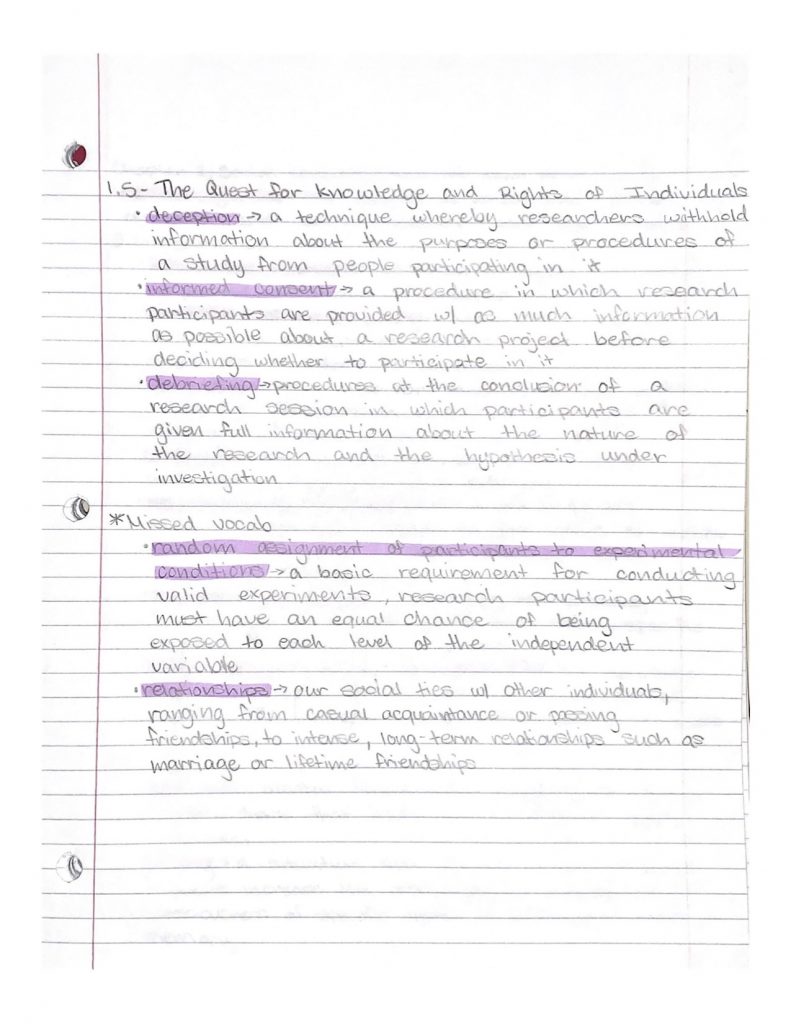 1.5- The Quest for Knowledge and Rights of Individuals
• deception → a technique whereby researchers withhold
information about the purposes or procedures of
a study from people participating in it
• informed consent → a procedure in which research
participants are provided w/ as much information
as possible about a research project before
deciding whether to participate in it
• debriefing → procedures at the conclusion of a
research session in which participants are
given full information about the nature of
the research and the hypothesis under
investigation
*Missed vocab
• random assignment of participants to experimental
conditions → a basic requirement for conducting
valid experiments, research participants
must have an equal chance of being
exposed to each level of the independent
variable
• relationships → our social ties w/ other individuals,
ranging from casual acquaintance or passing
friendships, to intense, long-term relationships such as
marriage or lifetime friendships